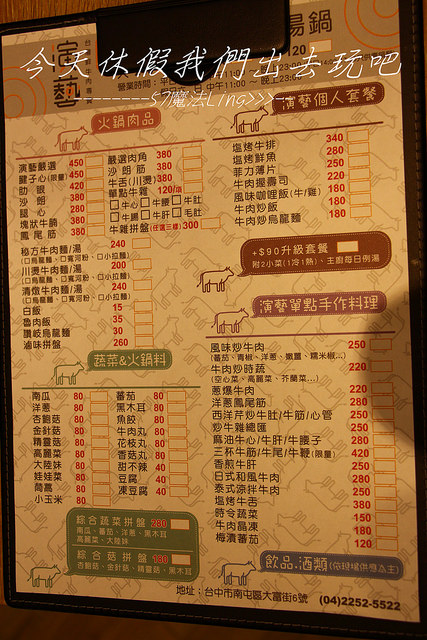 湯鍋
演藝
今天休假我們出去玩吧
S7魔法Ling>>>
火鍋肉品
演藝嚴選 450
腱子心(限量) 450
肋眼 420
沙朗 380
腿心 280
塊狀牛腩 380
鳳尾筋 380
嚴選肉角 380
沙朗筋 380
牛舌(川燙) 380
單點牛雜 120/項
□牛心 □牛腰 □牛肚
□牛腸 □牛肝 □毛肚
牛雜拼盤(任選三樣) 300
秘方牛肉麵/湯 240
□烏龍麵 □寬河粉 □小拉麵
川燙牛肉麵/湯 200
□烏龍麵 □寬河粉 □小拉麵
清燉牛肉麵/湯 240
□烏龍麵 □寬河粉 □小拉麵
白飯 15
魯肉飯 35
讚岐烏龍麵 30
滷味拼盤 260
蔬菜&火鍋料
南瓜 80
洋蔥 80
杏鮑菇 80
金針菇 80
精靈菇 80
高麗菜 80
大陸妹 80
娃娃菜 80
茼蒿 80
小玉米 80
番茄 80
黑木耳 80
魚餃 80
牛肉丸 80
花枝丸 80
香菇丸 80
甜不辣 40
豆腐 40
凍豆腐 40
綜合蔬菜拼盤 280
南瓜、番茄、洋蔥、黑木耳
高麗菜、大陸妹
綜合菇拼盤 180
杏鮑菇、金針菇、精靈菇、黑木耳
演藝個人套餐
塩烤牛排 340
塩烤鮮魚 280
菲力薄片 250
牛肉握壽司 220
風味咖哩飯(牛/雞) 180
牛肉炒飯 180
牛肉炒烏龍麵 180
+$90升級套餐
附2小菜(1冷1熱)、主廚每日例湯
演藝單點手作料理
風味炒牛肉 250
(番茄、青椒、洋蔥、嫩薑、糯米椒...)
牛肉炒時蔬 220
(空心菜、高麗菜、芥蘭菜...)
蔥爆牛肉 220
洋蔥鳳尾筋 280
西洋芹炒牛肚/牛筋/心管 250
炒牛雜總匯 250
麻油牛心/牛肝/牛腰子 280
三杯牛筋/牛尾/牛鞭(限量) 420
香煎牛肝 250
日式和風牛肉 280
泰式涼拌牛肉 250
塩烤牛舌 380
時令蔬菜 150
牛肉晶凍 180
梅漬蕃茄 120
飲品.酒類(依現場供應為主)
地址:台中市南屯區大富街6號 (04)2252-5522